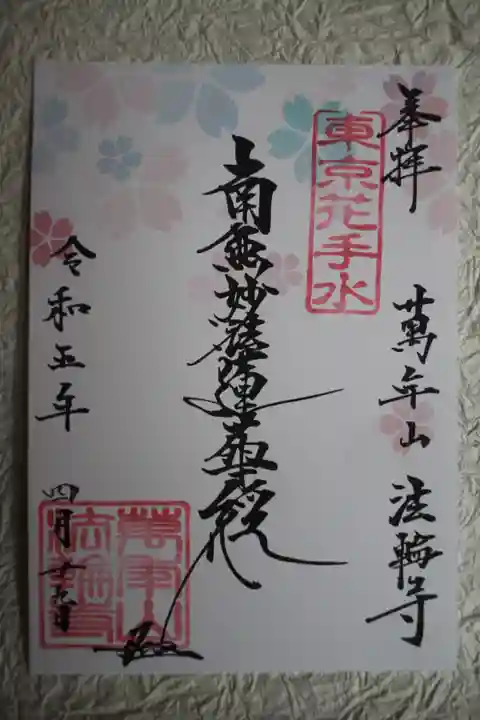 奉拝
萬年山 法輪寺
東京花手水
南無妙法蓮華経
令和五年 四月廿九日
萬年山
法輪寺